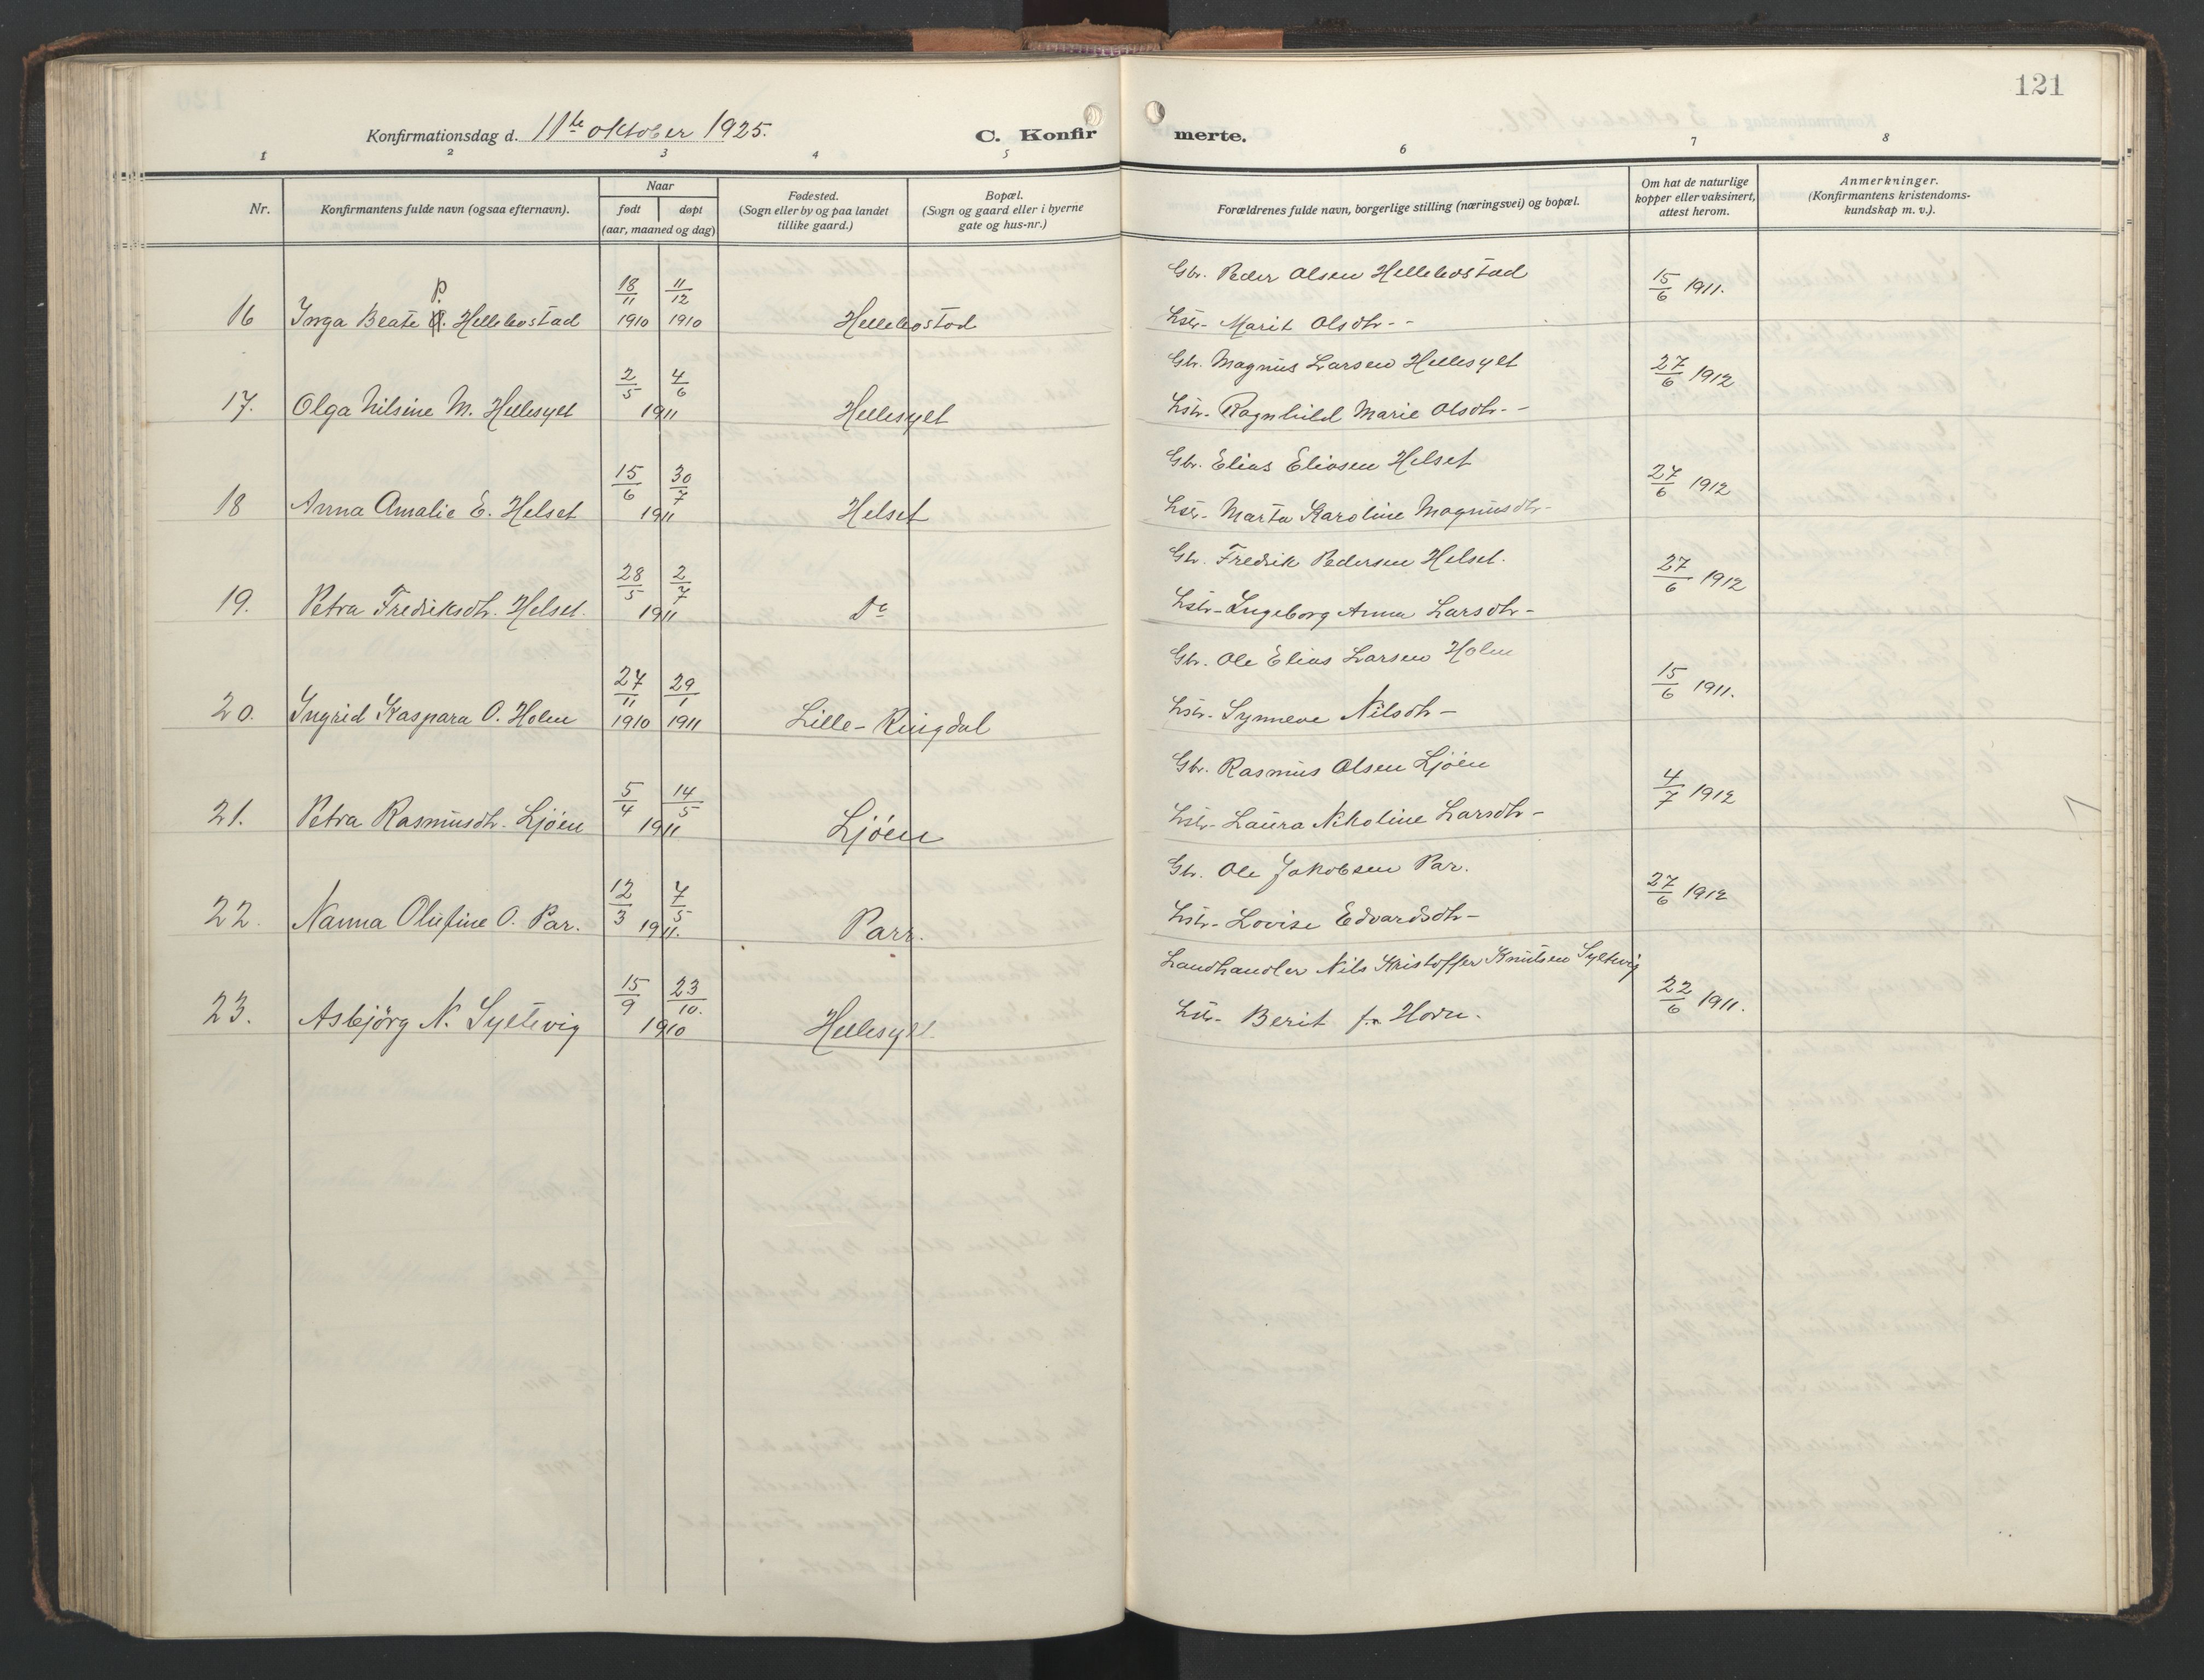 121
Konfirmationsdag d. 11te oktober 1925. C. Konfir merte.
1 2 3 4 5 6 7 8
Nr. Konfirmantens fulde navn (ogsaa efternavn). Naar født døpt (aar, maaned og dag) Fødested. (Sogn eller by og paa landet tillike gaard.) Bopæl. (Sogn og gaard eller i byerne gate og hus-nr.) Forældrenes fulde navn, borgerlige stilling (næringsvei) og bopæl. Om hat de naturlige kopper eller vaksinert, attest herom. Anmerkninger. (Konfirmantens kristendoms-kundskap m. v.).
P. 18/11 11/12 Gbr. Peder Olsen Hellebostad 15/6 1911.
16 Inga Beate O. Hellebostad 1910 1910 Hellebostad Hstr. Marit Olsdtr. - -
2/5 4/6 Gbr. Magnus Larsen Hellesylt 27/6 1912
17. Olga Nilsine M. Hellesylt 1911 Hellesylt Hstr. Ragnhild Marie Olsdtr. - -
15/6 30/7 Gbr. Elias Eliasen Helset 27/6 1912
18 Anna Amalie E. Helset 1911 Helset Hstr. Marta Karoline Magnusdtr -
28/5 2/7 Gbr. Fredrik Pedersen Helset. 27/6 1912
19. Petra Fredriksdtr. Helset. 1911 Do Hstr - Ingeborg Anna Larsdtr -
27/11 29/1 Gbr. Ole Elias Larsen Holm 15/6 1911.
20. Ingrid Kaspara O. Holm 1910 1911 Lille-Ringdal Hstr. Synneve Nilsdtr -
5/4 14/5 Gbr. Rasmus Olsen Ljöen 4/7 1912
21. Petra Rasmusdtr. Ljöen 1911 Ljöen Hstr - Laura Nikoline Larsdtr -
12/3 7/5 Gbr. Ole Jakobsen Par. 27/6 1912
22. Nanna Olufine O. Par. 1911. Parr. Hstr. Lovise Edvardsdtr -
15/9 23/10. Landhandler Nils Kristoffer Knutsen Syltevig 22/6 1911.
23. Asbjörg N. Syltevig 1910 Hellesylt. Hstr. Berit f. Horn.